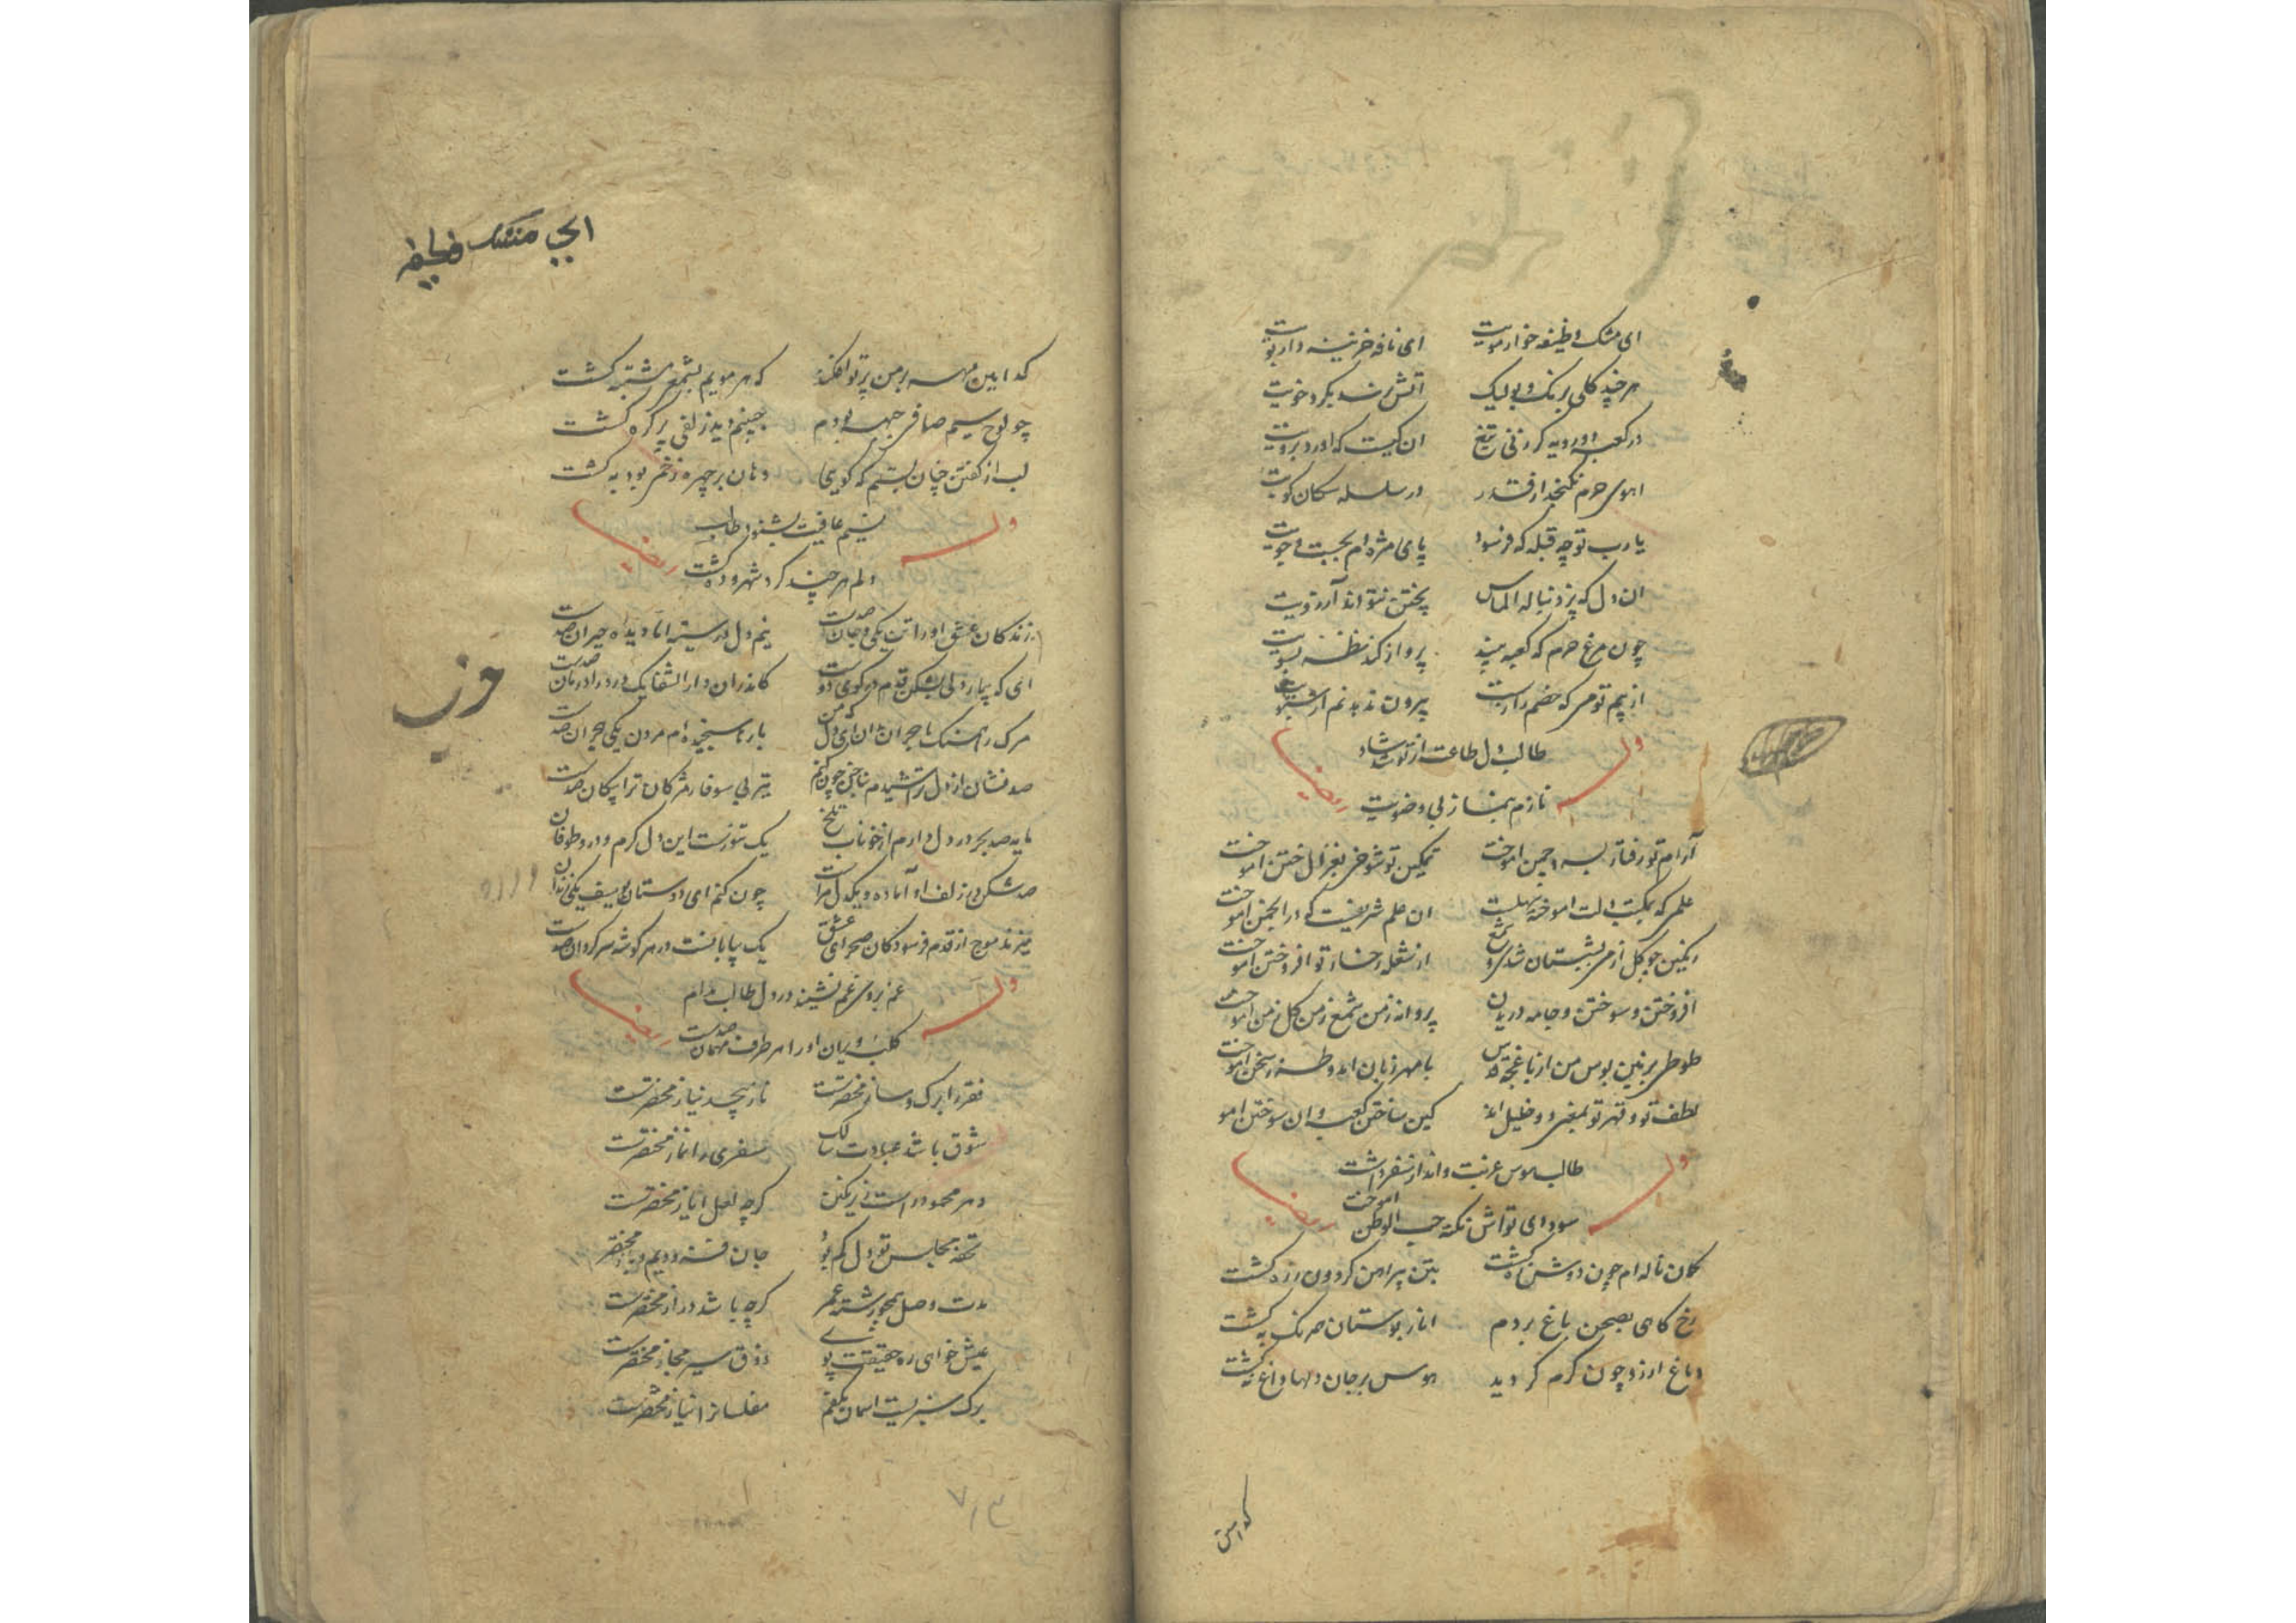 ای مشک وظیفه خوار مویت ای نافه خزینه دار بویت
هر چند کلی برنک و بو لیک آتش نکرد خویت
در کعبه اورد به کردنی تیغ ان کیست که اورد برویت
اهوی حرم نکنجد از قدر در سلسله سکان کویت
یا رب تو چه قبله که فرسود پای مژه ام بجست و جویت
ان دل که پزد نباله الماس پختن نتواند آرزویت
چون مرغ حرم که کعبه بیند پرواز کند نظر بسویت
از بیم تو می که خصم رازست بیرون ندهد نم از سبویت
طالب دل طاعت از تو شد شاد
وله ایضا
نازم بنماز بی وضویت
آرام تو رفتار بسرو چمن اموخت تمکین تو شوخی بغزال ختن اموخت
علمی که بمکتب دلت اموخته ان علم شریفست که در انجمن اموخت
رنکین چو کل از می بشبستان شدی و شمع از شعله رخسار تو افروختن اموخت
افروختن و سوختن و جامه دریدن پروانه ز من شمع ز من کل ز من اموخت
طوطی بزمین بوس من از باغچه قدس با مهر زبان امد و طرز سخن اموخت
لطف تو و قهر تو بمغرور و خلیل اند کین ساختن کعبه و ان سوختن اموخت
طالب هوس غربت و انداز سفر داشت
وله ایضا
سودای تو اش نکته حب الوطن اموخت
کمان ناله ام چون دوش زه کشت بتن پیراهن کردون زره کشت
رخ کاهی بصحن باغ بردم انار بوستان همرنک به کشت
دماغ ارزو چون کرم کردید هوس بر جان دلها داغ نه کشت
کدامین
ایجی
کدامین مه بر من پرتو افکند که هر مویم بشمعی مشتبه کشت
چو لوح سیم صافی جبهه بودم جبینم دید زلفی پر کره کشت
لب از کفتن چنان بستم که کویی دهان بر چهره زخمی بود به کشت
نسیم عافیت نشنود طالب
وله ایضا
دلم هر چند کرد شهر و ده کشت
زندکان عشق او را تن یکی و جان صدست نیم دل در سینه اما دیده حیران صدست
ای که بیمار دلی بشکن قدم در کوی دوست کاندران دارالشفا یک درد را درمان صدست
مرک را همسنک با هجران مدان ای دل که من بارها سنجیده ام مردن یکی هجران صدست
صد نشان از دل تراشیدم بناخن چون کنم تیر بی سوفار مژکان ترا پیکان صدست
مایه صد بحر در دل دارم از خوناب تلخ یک تنورست این دل کرم و درو طوفان
صد شکن در زلف او آماده و یکدل مراست چون کنم ای دوستان یوسف یکی زندان
میزند موج از قدم فرسودکان صحرای عشق یک بیابانست در هر کوشه سرکردان صدست
غم بروی غم نشیند در دل طالب مدام
وله ایضا
کلبه ویران او را هر طرف مهمان صدست
فقر را برک و ساز مختصرست ناز بیحد نیاز مختصرست
شوق باشد عبادت سالک سفری را نماز مختصرست
دهر محمود راست زیر نکین کرچه لعل ایاز مختصرست
تحفه مجلس تو دل کم بود جان فزودیم و باز مختصر
مدت وصل همچو رشته عمر کرچه باشد دراز مختصرست
عیش خواهی ره حقیقت پوی ذوق سیر مجاز مختصرست
برک سبزیست اسمان بکفم مفلسانرا نیاز مختصرست